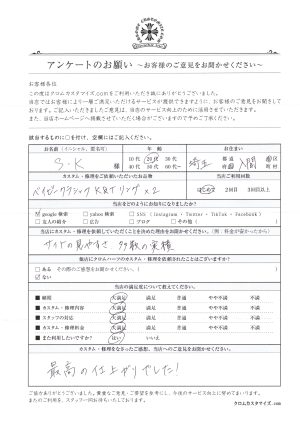 アンケートのお願い ～お客様のご意見をお聞かせください～
お客様各位
この度はクロムカスタマイズ.comをご利用いただき誠にありがとうございました。
当店ではお客様により一層ご満足いただけるサービスが提供できますように、お客様のご意見をお聞きして
おります。ご記入いただきましたご意見は、当店のサービス向上のために活用させていただきます。
また、当店ホームページへ掲載させていただく場合がございますので予めご了承ください。
該当するものに○を付け、空欄にはご記入ください。
お名前（イニシャル、匿名可） 年 齢 お住まい
S・K 様
10代 20代 30代
40代 50代 60代
埼玉 都道府県 入間 市区町村
カスタム・修理をご依頼いただいたお品物 当店ご利用回数
ベイビークラシック K&T リング×2 はじめて 2回目 3回目以上
当店をどのようにお知りになりましたか？
google 検索 yahoo 検索 SNS（Instagram・Twitter・TikTok・Facebook）
友人の紹介 広告 ブログ その他（ ）
当店にカスタム・修理を依頼していただくことを決めた理由をお聞かせください。（例：料金が安かったから）
サイトの見やすさ 多数の実績
他店にクロムハーツのカスタム・修理を依頼されたことはございますか？
ある その際のご感想をお聞かせください（ ）
ない
当店の満足度について教えてください。
接客 大満足 満足 普通 やや不満 不満
カスタム・修理内容 大満足 満足 普通 やや不満 不満
スタッフの対応 大満足 満足 普通 やや不満 不満
カスタム・修理料金 大満足 満足 普通 やや不満 不満
また利用したいですか？ はい いいえ
カスタム・修理をなさったご感想、当店へのご意見をお聞かせください
最高の仕上がりでした！
ご協力ありがとうございました。貴重なご意見・ご要望を参考にし、今後のサービス向上に努めてまいります。
またのご利用を、スタッフ一同お待ちいたしております。
クロムカスタマイズ.com